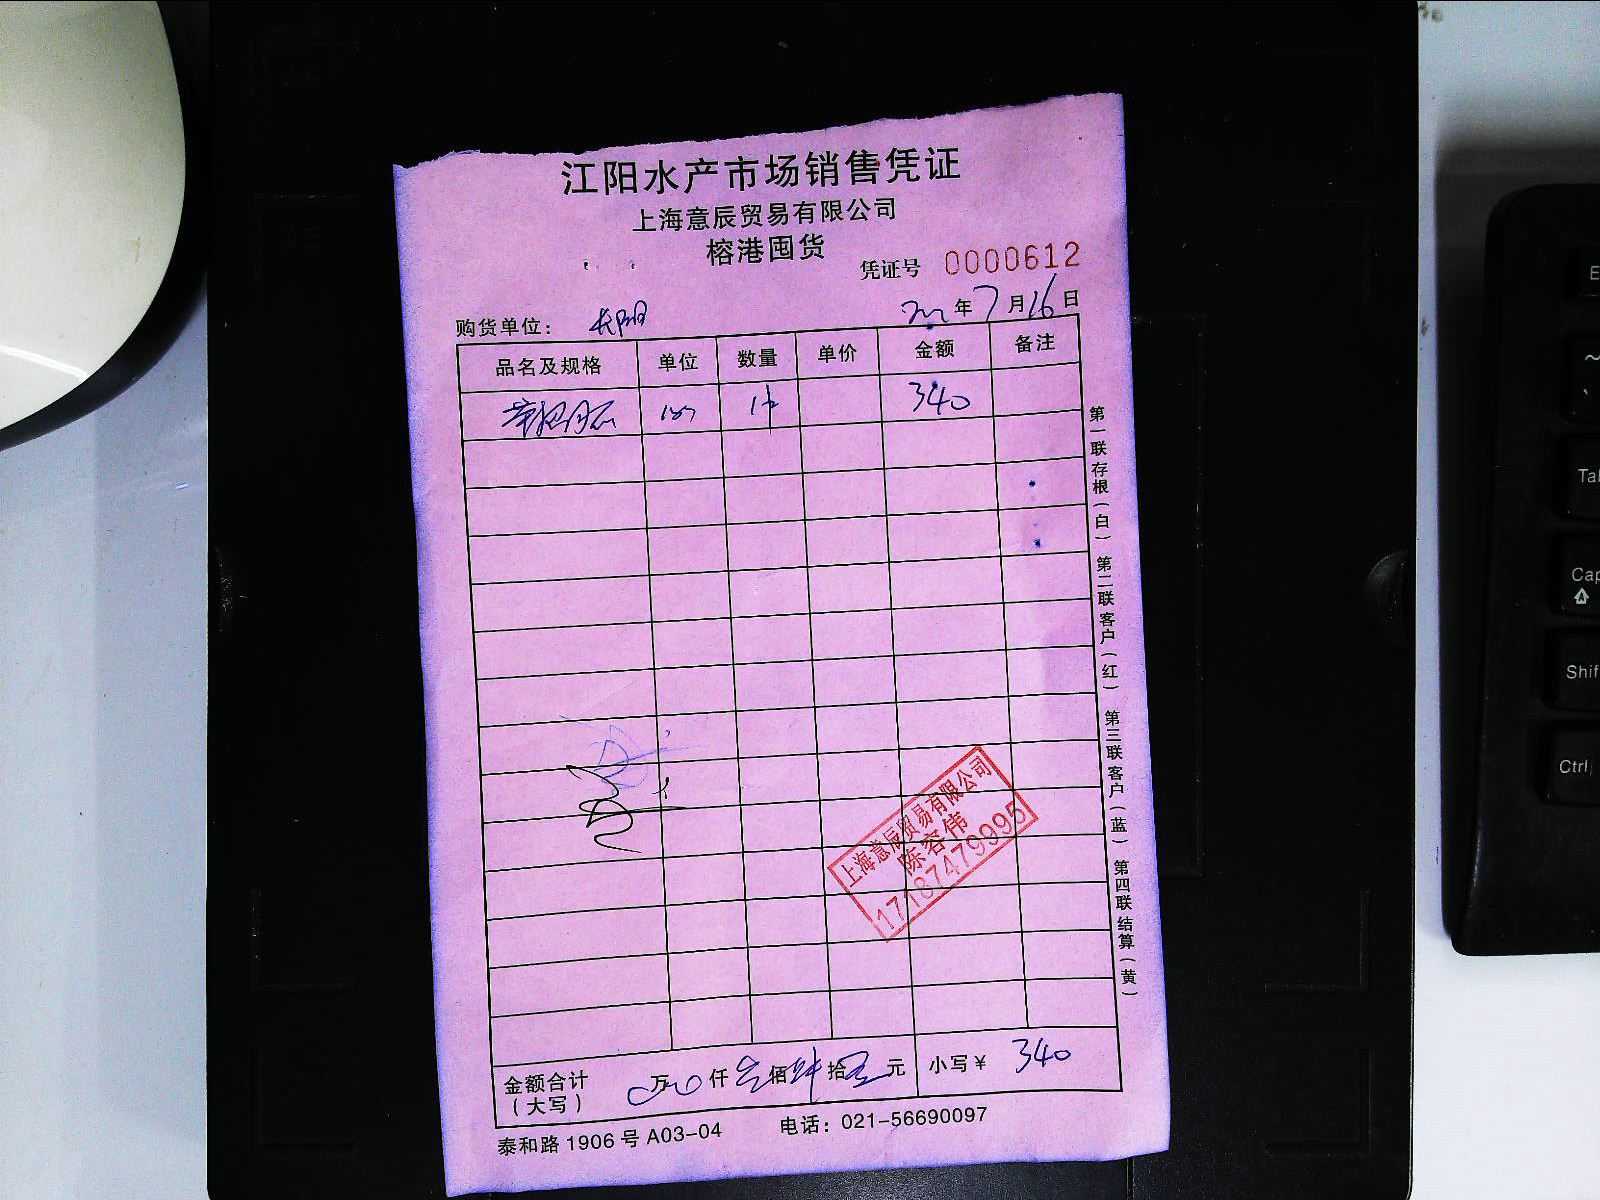 江阳水产市场销售凭证
上海意辰贸易有限公司
榕港囤货
凭证号 0000612
购货单位： 年7月16日
品名及规格 单位 数量 单价 金额 备注
340
上海意辰贸易有限公司
陈容伟
17187479995
金额合计 万 仟 叁佰肆拾 元 小写￥ 340
（大写）
泰和路1906号A03-04 电话：021-56690097
第一联存根（白） 第二联客户（红） 第三联客户（蓝） 第四联结算（黄）
E
~
Tab
Cap
Shif
Ctrl